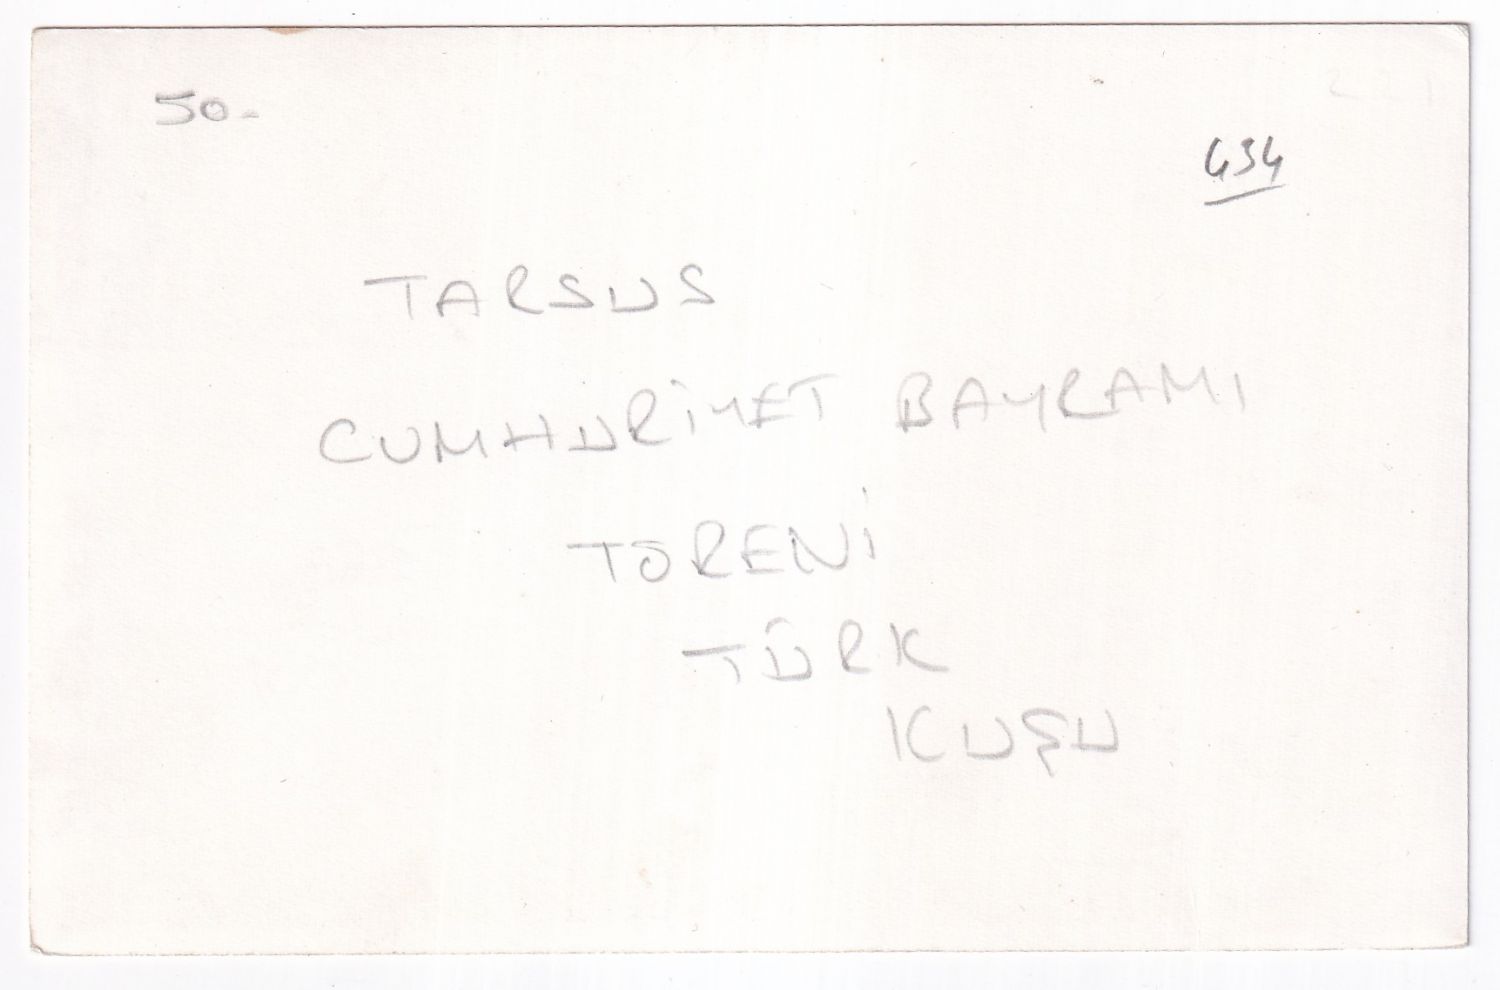 50.-
434
TARSUS
CUMHURİYET BAYRAMI
TÖRENİ
TÜRK
KUŞU